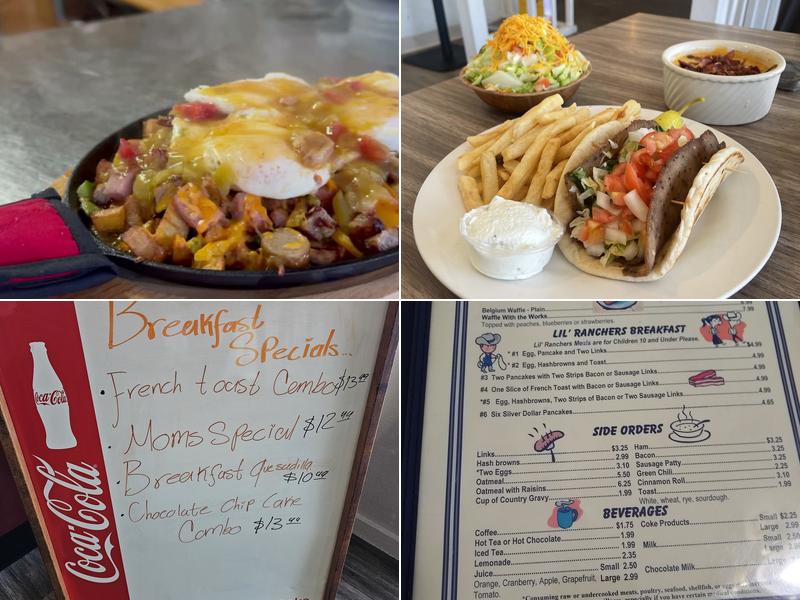 Breakfast
Specials...
• French toast Combo $13.49
• Moms Special $12.49
• Breakfast Quesadilla
$10.49
• Chocolate Chip Cake
Combo $13.49
Coca-Cola
Coca-Cola
Belgium Waffle - Plain
Waffle With the Works 7.99
Topped with peaches, blueberries or strawberries.
LIL' RANCHERS BREAKFAST
Lil' Ranchers Meals are for Children 10 and Under Please.
* #1 Egg, Pancake and Two Links $4.99
* #2 Egg, Hashbrowns and Toast 4.99
#3 Two Pancakes with Two Strips Bacon or Sausage Links 4.99
#4 One Slice of French Toast with Bacon or Sausage Links 4.99
*#5 Egg, Hashbrowns, Two Strips of Bacon or Two Sausage Links 4.99
#6 Six Silver Dollar Pancakes 4.65
SIDE ORDERS
Links $3.25
Hash browns 2.99
*Two Eggs 3.10
Oatmeal 5.50
Oatmeal with Raisins 6.25
Cup of Country Gravy 1.99
Ham $3.25
Bacon 3.25
Sausage Patty 3.25
Green Chili 2.25
Cinnamon Roll 3.10
Toast 1.99
White, wheat, rye, sourdough.
BEVERAGES
Coffee $1.75
Hot Tea or Hot Chocolate 1.99
Iced Tea 1.99
Lemonade 2.35
Juice Small 2.50
Orange, Cranberry, Apple, Grapefruit, Large 2.99
Tomato.
Coke Products Small $2.25
Large 2.99
Milk Small 2.50
Large
Chocolate Milk Small
Large 2.99
*Consuming raw or undercooked meats, poultry, seafood, shellfish, or eggs
especially if you have certain medical conditions.